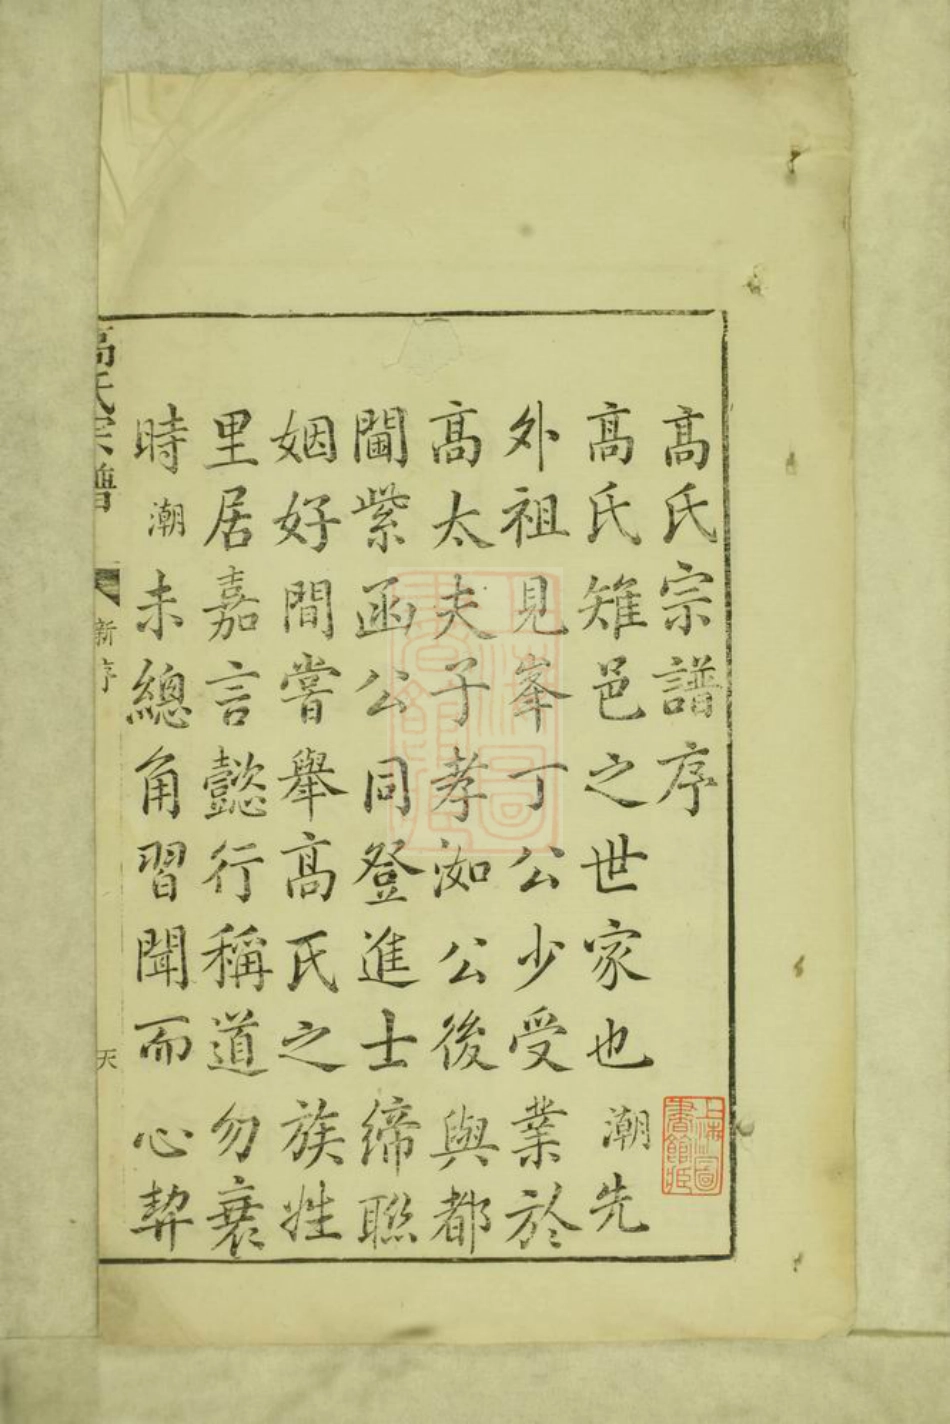 高氏宗譜序
高氏雉邑之世家也潮先
外祖見峯丁公少受業於
高太夫子孝洳公後與都
閫紫函公同登進士締聯
姻好間嘗舉高氏之族姓
里居嘉言懿行稱道勿衰
時潮未總角習聞而心契
高氏宗譜
新序
天
上海圖書館藏